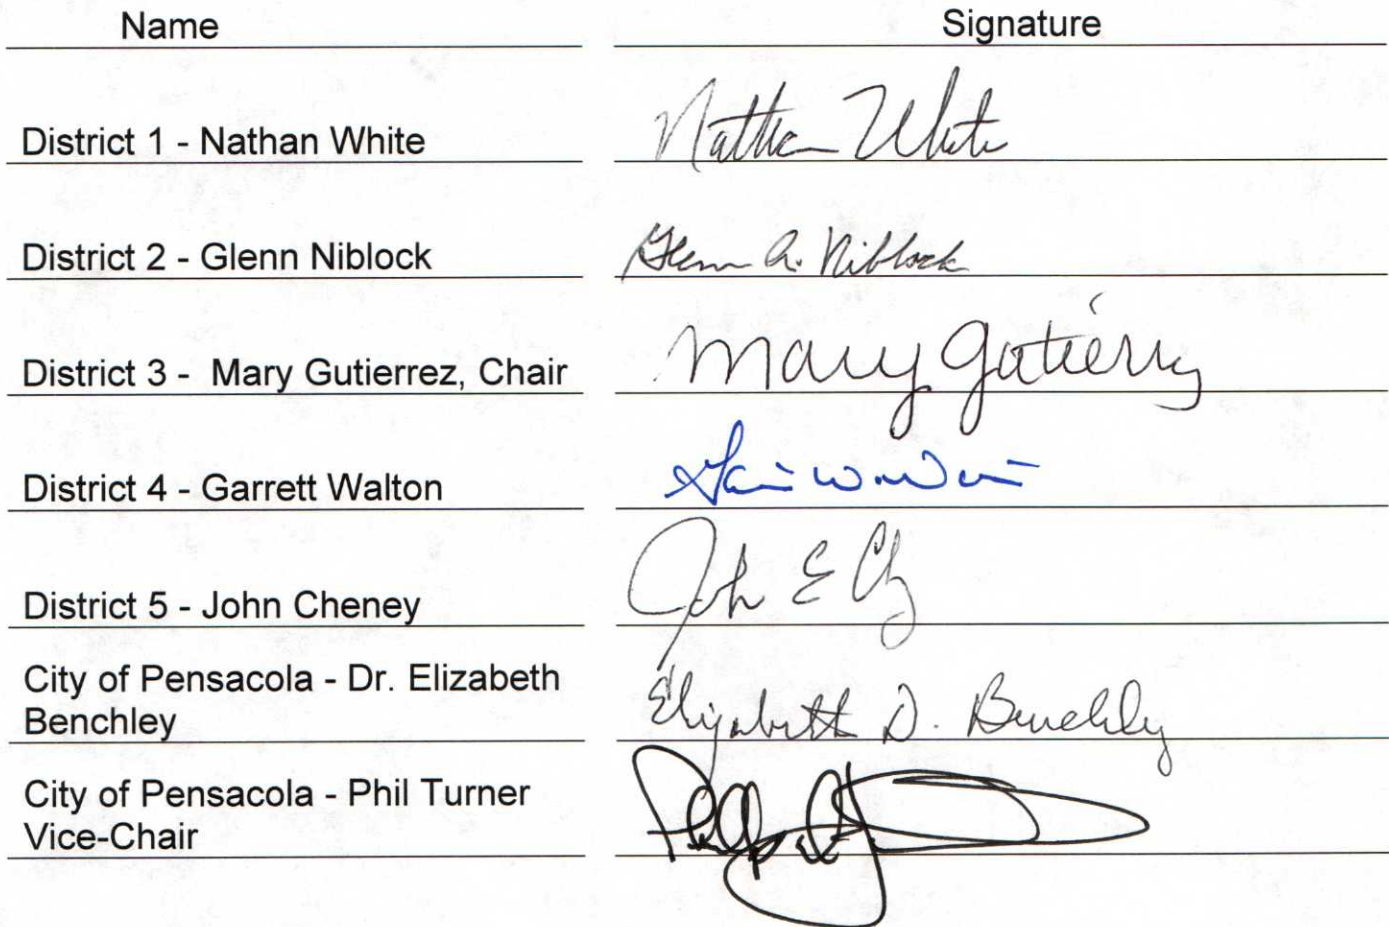 Name Signature
District 1 - Nathan White Nathan White
District 2 - Glenn Niblock Glenn A. Niblock
District 3 - Mary Gutierrez, Chair Mary Gutierrez
District 4 - Garrett Walton
District 5 - John Cheney John E
City of Pensacola - Dr. Elizabeth
Benchley Elizabeth D. Benchley
City of Pensacola - Phil Turner
Vice-Chair